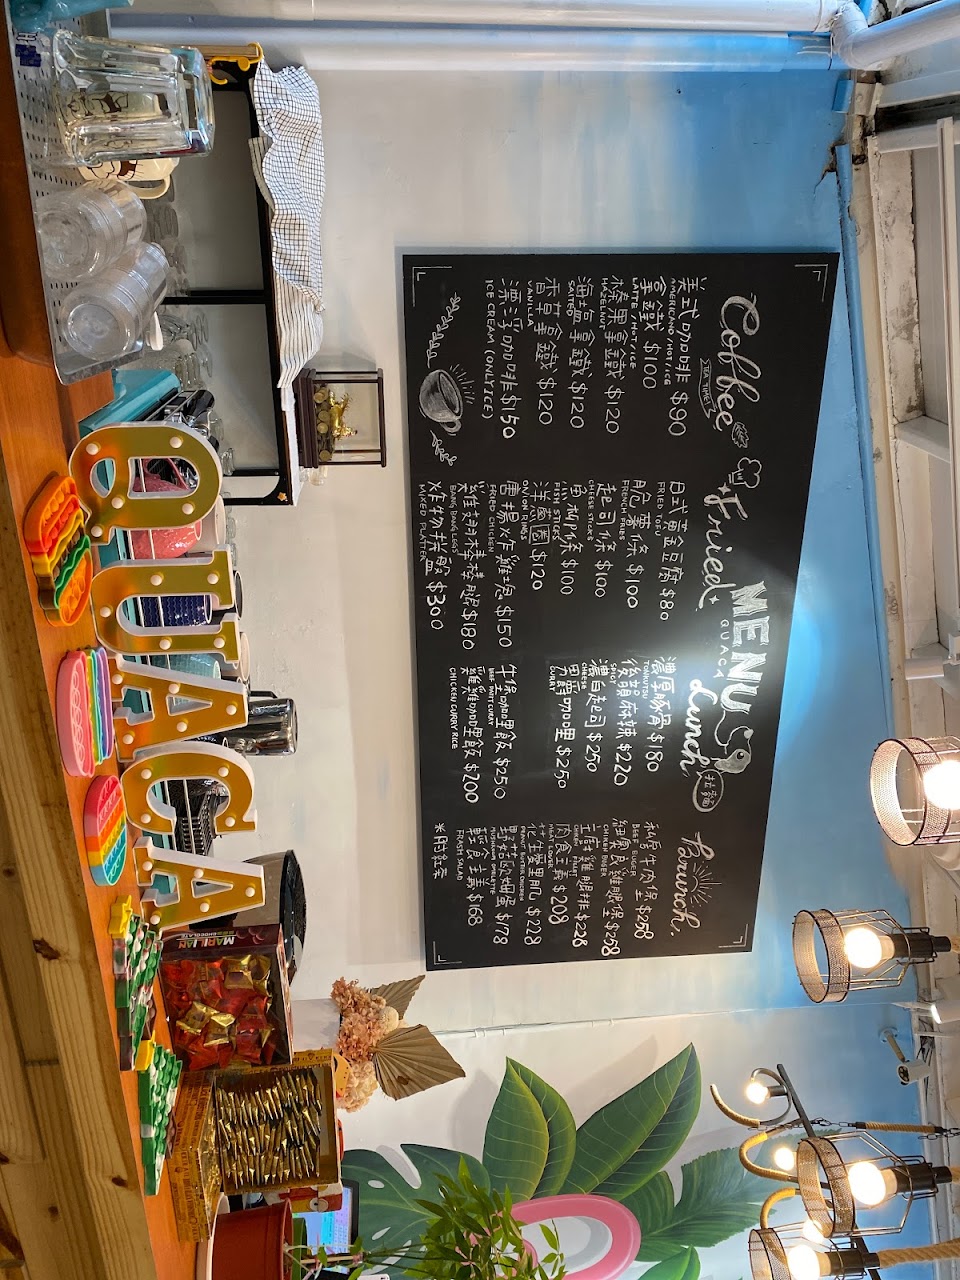 MENU
QUACA
Coffee
TEA TIME
美式咖啡 $90
AMERICANO HOT/ICE
拿鐵 $100
LATTE HOT/ICE
榛果拿鐵 $120
HAZELNUT
海鹽拿鐵 $120
SALTED
香草拿鐵 $120
VANILLA
漂浮咖啡 $150
ICE CREAM (ONLY ICE)
Fried
日式黃金豆腐 $80
FRIED TOFU
脆薯條 $100
FRENCH FRIES
起司條 $100
CHEESE STICKS
魚柳條 $100
FISH STICKS
洋蔥圈 $120
ONION RINGS
唐揚炸雞塊 $150
FRIED CHICKEN
雞翅棒棒腿 $180
BANG BANG LEGS
炸物拼盤 $300
MIXED PLATTER
Lunch
拉麵
濃厚豚骨 $180
TONKUTSU
後韻麻辣 $220
SPICY
濃白起司 $250
CHEESE
黑爵咖哩 $250
CURRY
牛腩咖哩飯 $250
BEEF CURRY
雞雞咖哩飯 $200
CHICKEN CURRY RICE
Brunch
私房牛肉堡 $258
BEEF BUGER
紐澳良雞腿堡 $258
CHIKEN BUGER
正府雞腿排 $228
CHIKEN FILLET
肉食主義 $208
MEAT LOVER
花生愛里肌 $228
PEANUT BUTTER CHICKEN
野菇歐姆蛋 $178
MUSHROOM OMELETTE
輕食主義 $168
FRASH SALAD
※附紅茶
QUACA
MARIJAN
CHOCOLATE